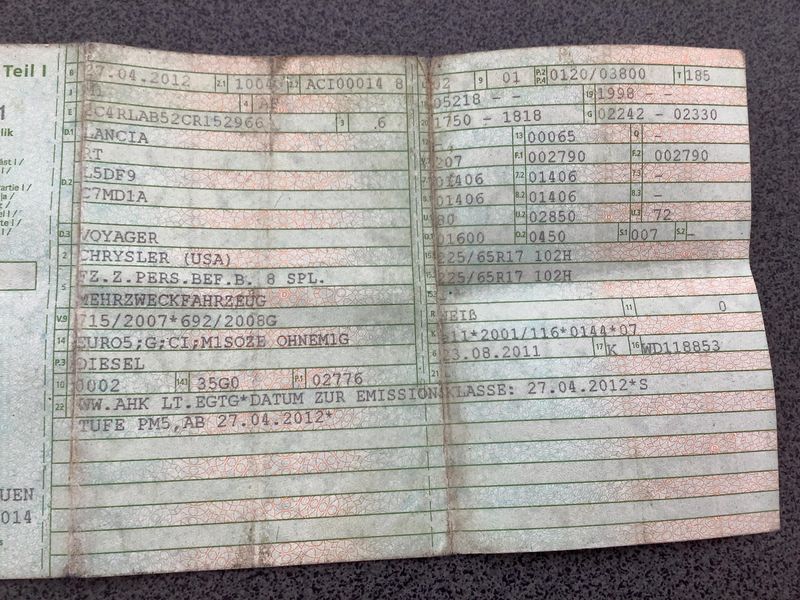 Teil I
B 27.04.2012 2.1 1004 2.2 ACI00014 8
J 4
E 1C4RLAB52CR152966 3 .6
D.1 LANCIA
RT
L5DF9
D.2 C7MD1A
D.3 VOYAGER
2 CHRYSLER (USA)
5 FZ.Z.PERS.BEF.B. 8 SPL.
MEHRZWECKFAHRZEUG
V.9 715/2007*692/2008G
14 EURO5;G;CI;M1SOZE OHNEM1G
P.3 DIESEL
10 0002 14.1 35G0 P.1 02776
22 WW.AHK LT.EGTG*DATUM ZUR EMISSIONSKLASSE: 27.04.2012*S
TUFE PM5,AB 27.04.2012*
02 9 01 P.2 P.4 0120/03800 T 185
05218 - - 19 1998 - -
20 1750 - 1818 G 02242 - 02330
13 00065 Q -
207 F.1 002790 F.2 002790
01406 7.2 01406 7.3 -
01406 8.2 01406 8.3 -
U.1 80 U.2 02850 U.3 72
O.1 01600 O.2 0450 S.1 007 S.2 -
225/65R17 102H
225/65R17 102H
R WEIß 11 0
K e11*2001/116*0144*07
6 23.08.2011 17 K 16 WD118853
21
UEN
014